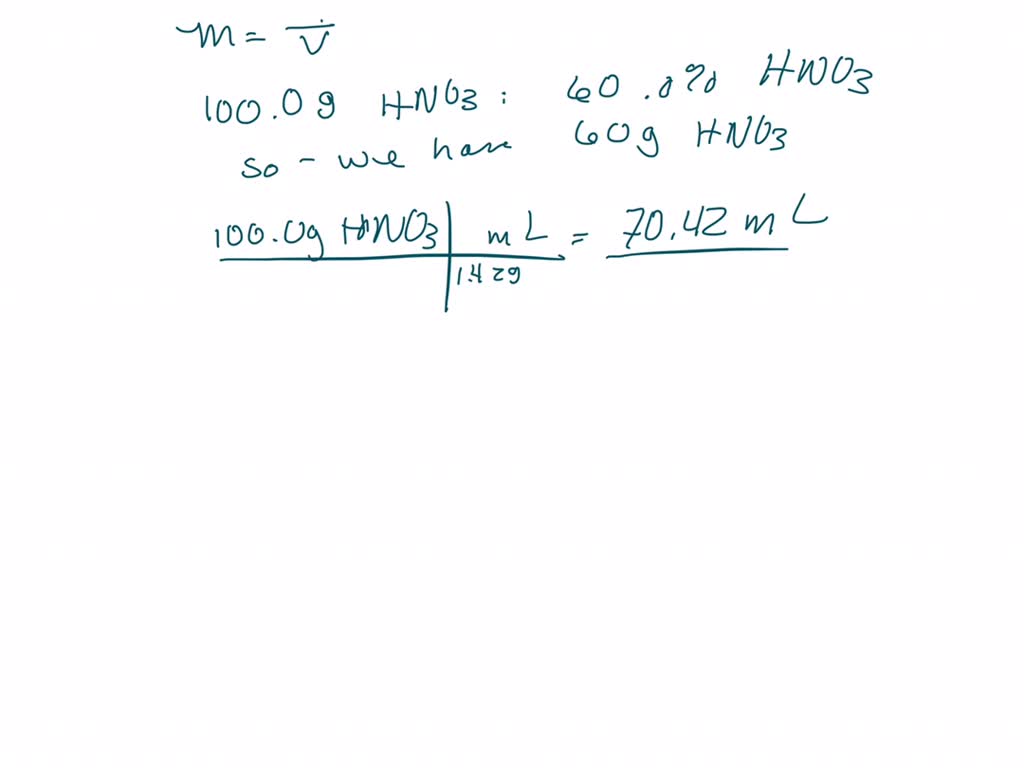 M = V
100.0g HNO3 : 60.0% HNO3
so - we have 60g HNO3
100.0g HNO3 | mL = 70.42 mL
1.42g